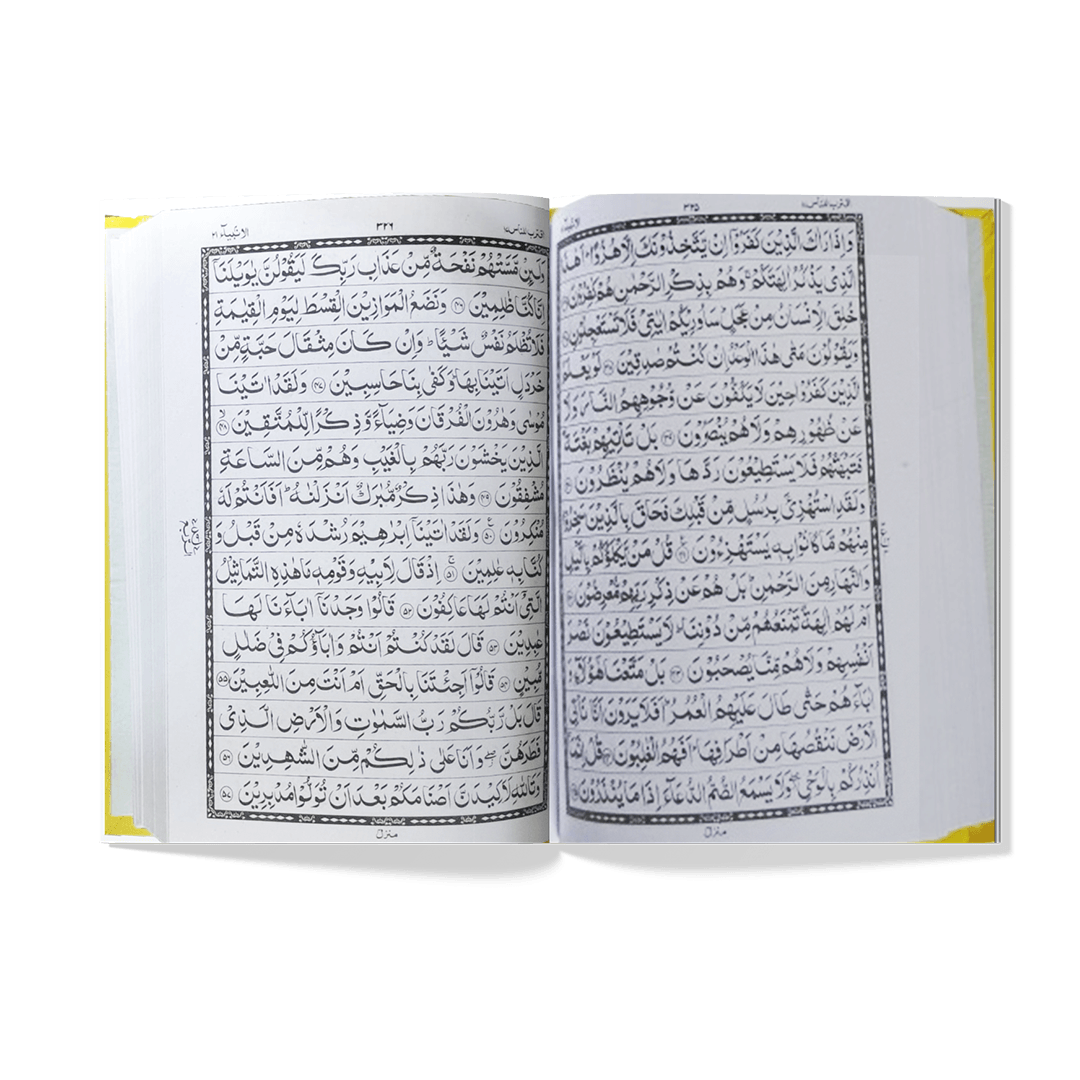 اقترب للناس ۱۷ ۳۲۵
وَاِذَا رَاٰكَ الَّذِيْنَ كَفَرُوْۤا اِنْ يَّتَّخِذُوْنَكَ اِلَّا هُزُوًا ؕ اَهٰذَا
الَّذِيْ يَذْكُرُ اٰلِهَتَكُمْ ۚ وَهُمْ بِذِكْرِ الرَّحْمٰنِ هُمْ كٰفِرُوْنَ
خُلِقَ الْاِنْسَانُ مِنْ عَجَلٍ ؕ سَاُورِيْكُمْ اٰيٰتِيْ فَلَا تَسْتَعْجِلُوْنِ
وَيَقُوْلُوْنَ مَتٰى هٰذَا الْوَعْدُ اِنْ كُنْتُمْ صٰدِقِيْنَ ﴿۳۸﴾ لَوْ يَعْلَمُ
الَّذِيْنَ كَفَرُوْا حِيْنَ لَا يَكُفُّوْنَ عَنْ وُّجُوْهِهِمُ النَّارَ وَلَا
عَنْ ظُهُوْرِهِمْ وَلَا هُمْ يُنْصَرُوْنَ ﴿۳۹﴾ بَلْ تَاْتِيْهِمْ بَغْتَةً
فَتَبْهَتُهُمْ فَلَا يَسْتَطِيْعُوْنَ رَدَّهَا وَلَا هُمْ يُنْظَرُوْنَ
وَلَقَدِ اسْتُهْزِئَ بِرُسُلٍ مِّنْ قَبْلِكَ فَحَاقَ بِالَّذِيْنَ سَخِرُوْا
مِنْهُمْ مَّا كَانُوْا بِهٖ يَسْتَهْزِءُوْنَ ﴿۴۱﴾ قُلْ مَنْ يَّكْلَؤُكُمْ بِالَّيْلِ
وَالنَّهَارِ مِنَ الرَّحْمٰنِ ؕ بَلْ هُمْ عَنْ ذِكْرِ رَبِّهِمْ مُّعْرِضُوْنَ
اَمْ لَهُمْ اٰلِهَةٌ تَمْنَعُهُمْ مِّنْ دُوْنِنَا ؕ لَا يَسْتَطِيْعُوْنَ نَصْرَ
اَنْفُسِهِمْ وَلَا هُمْ مِّنَّا يُصْحَبُوْنَ ﴿۴۳﴾ بَلْ مَتَّعْنَا هٰۤؤُلَآءِ وَ
اٰبَآءَهُمْ حَتّٰى طَالَ عَلَيْهِمُ الْعُمُرُ ؕ اَفَلَا يَرَوْنَ اَنَّا نَاْتِي
الْاَرْضَ نَنْقُصُهَا مِنْ اَطْرَافِهَا ؕ اَفَهُمُ الْغٰلِبُوْنَ ﴿۴۴﴾ قُلْ اِنَّمَاۤ
اُنْذِرُكُمْ بِالْوَحْيِ ۖ وَلَا يَسْمَعُ الصُّمُّ الدُّعَآءَ اِذَا مَا يُنْذَرُوْنَ
منزل
اقترب للناس ۱۷ ۳۲۶ الانبیآء ۲۱
وَلَئِنْ مَّسَّتْهُمْ نَفْحَةٌ مِّنْ عَذَابِ رَبِّكَ لَيَقُوْلُنَّ يٰوَيْلَنَاۤ
اِنَّا كُنَّا ظٰلِمِيْنَ ﴿۴۶﴾ وَنَضَعُ الْمَوَازِيْنَ الْقِسْطَ لِيَوْمِ الْقِيٰمَةِ
فَلَا تُظْلَمُ نَفْسٌ شَيْئًا ؕ وَاِنْ كَانَ مِثْقَالَ حَبَّةٍ مِّنْ
خَرْدَلٍ اَتَيْنَا بِهَا ؕ وَكَفٰى بِنَا حَاسِبِيْنَ ﴿۴۷﴾ وَلَقَدْ اٰتَيْنَا
مُوْسٰى وَهٰرُوْنَ الْفُرْقَانَ وَضِيَآءً وَّذِكْرًا لِّلْمُتَّقِيْنَ ﴿۴۸﴾
الَّذِيْنَ يَخْشَوْنَ رَبَّهُمْ بِالْغَيْبِ وَهُمْ مِّنَ السَّاعَةِ
مُشْفِقُوْنَ ﴿۴۹﴾ وَهٰذَا ذِكْرٌ مُّبٰرَكٌ اَنْزَلْنٰهُ ؕ اَفَاَنْتُمْ لَهٗ
مُنْكِرُوْنَ ﴿۵۰﴾ وَلَقَدْ اٰتَيْنَاۤ اِبْرٰهِيْمَ رُشْدَهٗ مِنْ قَبْلُ وَ
كُنَّا بِهٖ عٰلِمِيْنَ ﴿۵۱﴾ اِذْ قَالَ لِاَبِيْهِ وَقَوْمِهٖ مَا هٰذِهِ التَّمَاثِيْلُ
الَّتِيْۤ اَنْتُمْ لَهَا عَاكِفُوْنَ ﴿۵۲﴾ قَالُوْا وَجَدْنَاۤ اٰبَآءَنَا لَهَا
عٰبِدِيْنَ ﴿۵۳﴾ قَالَ لَقَدْ كُنْتُمْ اَنْتُمْ وَاٰبَآؤُكُمْ فِيْ ضَلٰلٍ
مُّبِيْنٍ ﴿۵۴﴾ قَالُوْۤا اَجِئْتَنَا بِالْحَقِّ اَمْ اَنْتَ مِنَ اللّٰعِبِيْنَ ﴿۵۵﴾
قَالَ بَلْ رَّبُّكُمْ رَبُّ السَّمٰوٰتِ وَالْاَرْضِ الَّذِيْ
فَطَرَهُنَّ ۖ وَاَنَا عَلٰى ذٰلِكُمْ مِّنَ الشّٰهِدِيْنَ ﴿۵۶﴾
وَتَاللّٰهِ لَاَكِيْدَنَّ اَصْنَامَكُمْ بَعْدَ اَنْ تُوَلُّوْا مُدْبِرِيْنَ ﴿۵۷﴾
منزل